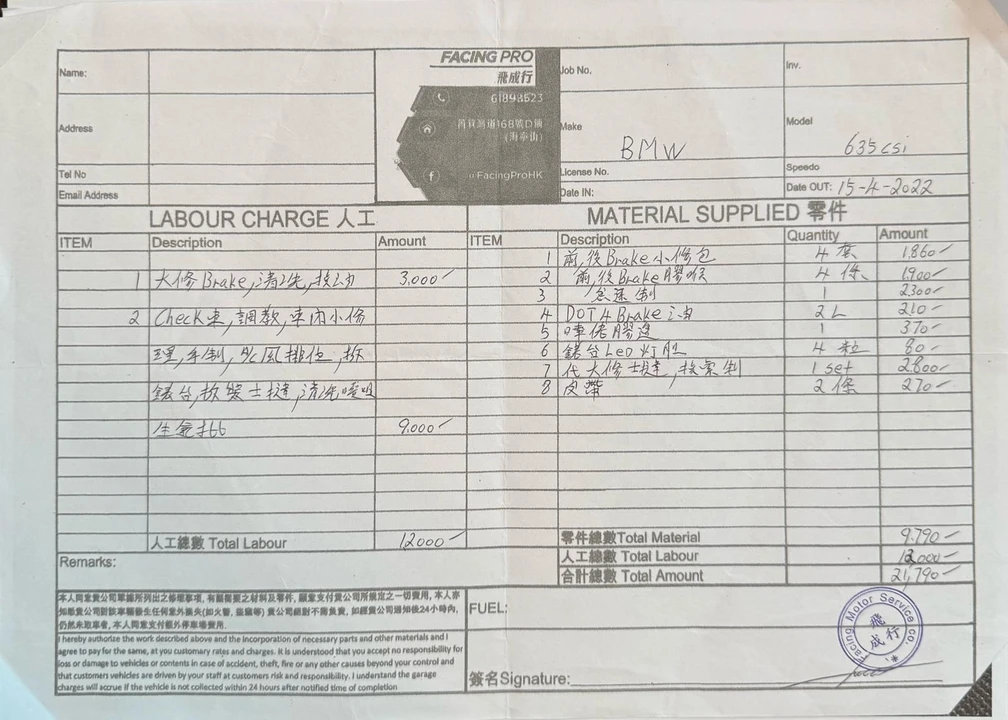 FACING PRO
飛成行
61898623
筲箕灣道168號D舖
(海寧街)
@FacingProHK
Name:
Address
Tel No
Email Address
Job No.
Inv.
Make BMW
Model 635csi
License No.
Speedo
Date IN:
Date OUT: 15-4-2022
LABOUR CHARGE 人工
ITEM Description Amount
1 大修Brake,清洗,換油 3,000
2 Check車,調教,車內小修
理,手制,
錶台,拆裝士撻,清洗
9,000
人工總數 Total Labour 12000
MATERIAL SUPPLIED 零件
ITEM Description Quantity Amount
1 前,後Brake小修包 4套 1,860
2 前,後Brake膠喉 4條 1,900
3 怠速制 1 2300
4 DOT4 Brake油 2L 210
5 膠 1 370
6 錶台Led灯胆 4粒 80
7 代大修士撻,換索制 1 set 2800
8 皮帶 2條 270
零件總數Total Material 9,790
人工總數 Total Labour 12,000
合計總數 Total Amount 21,790
Remarks:
本人同意貴公司單據所列出之修理事項,有關需要之材料及零件,願意支付貴公司所規定之一切費用,本人亦
知悉貴公司對該車輛發生任何意外損失(如火警,盜竊等)貴公司絕對不需負責,如經貴公司通知後24小時內,
仍然未取車者,本人同意支付額外停車場費用.
I hereby authorize the work described above and the incorporation of necessary parts and other materials and I
agree to pay for the same, at you customary rates and charges. It is understood that you accept no responsibility for
loss or damage to vehicles or contents in case of accident, theft, fire or any other causes beyond your control and
that customers vehicles are driven by your staff at customers risk and responsibility. I understand the garage
charges will accrue if the vehicle is not collected within 24 hours after notified time of completion
FUEL:
Facing Motor Service co.
飛成行
簽名Signature: